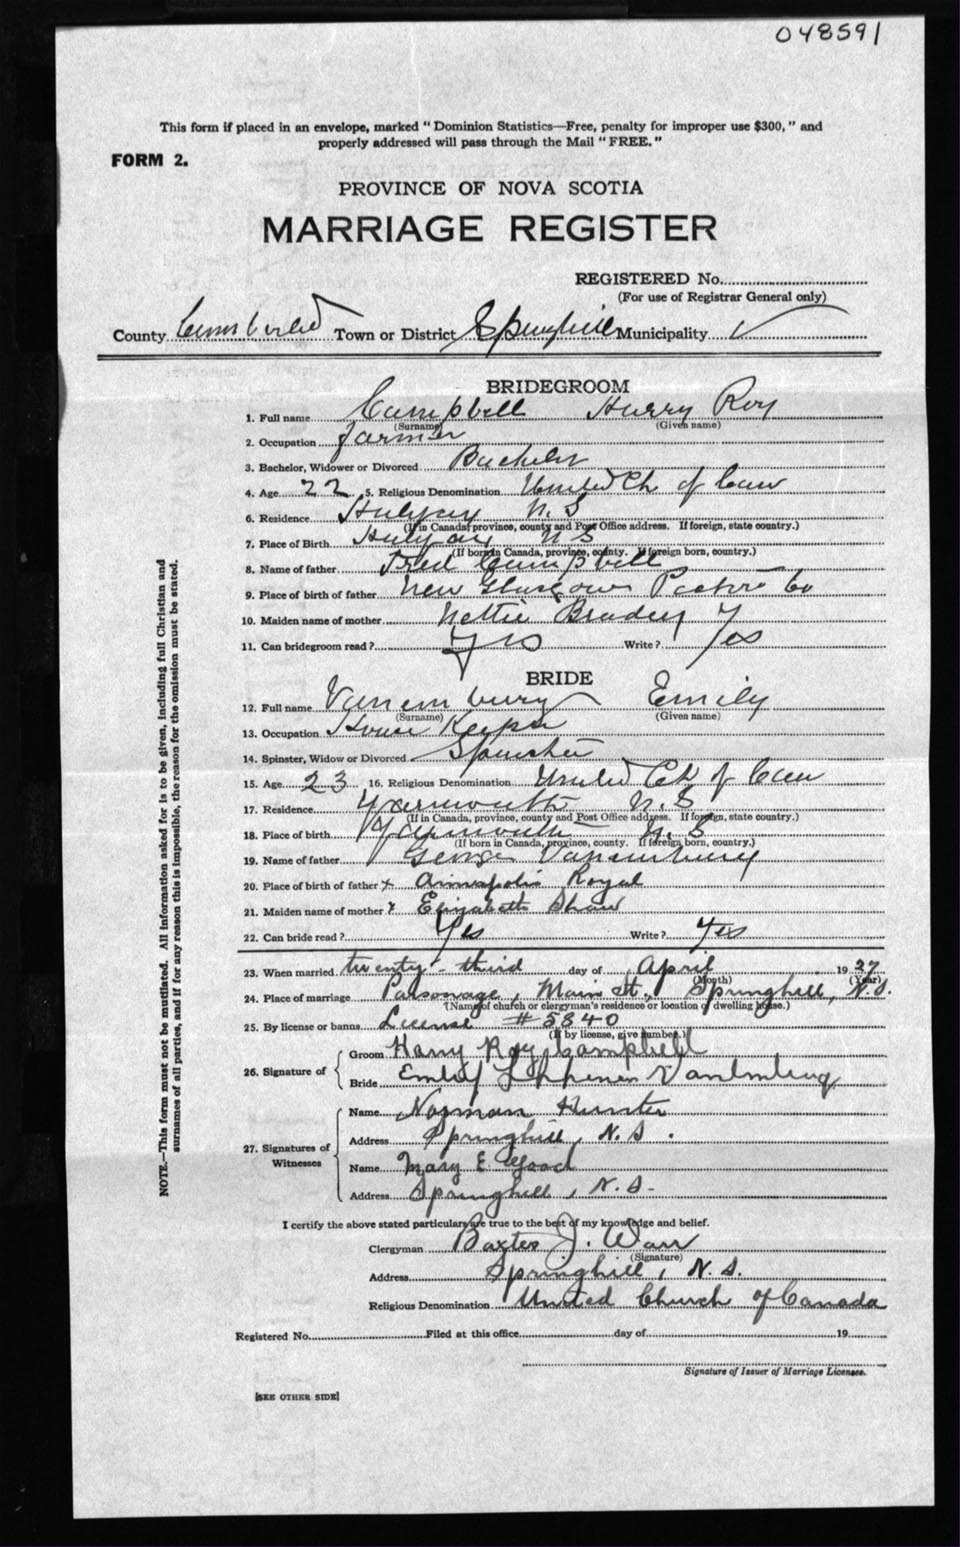 048591
This form if placed in an envelope, marked "Dominion Statistics—Free, penalty for improper use $300," and
properly addressed will pass through the Mail "FREE."
FORM 2.
PROVINCE OF NOVA SCOTIA
MARRIAGE REGISTER
REGISTERED No.
(For use of Registrar General only)
County Cumberland Town or District Springhill Municipality
BRIDEGROOM
1. Full name Campbell Harry Roy
(Surname) (Given name)
2. Occupation farmer
3. Bachelor, Widower or Divorced Bachelor
4. Age 22 5. Religious Denomination United Ch of Can
6. Residence N.S
(If in Canada, province, county and Post Office address. If foreign, state country.)
7. Place of Birth NS
(If born in Canada, province, county. If foreign born, country.)
8. Name of father Fred Campbell
9. Place of birth of father New Glasgow Pictou Co
10. Maiden name of mother Nettie
11. Can bridegroom read? Yes Write? Yes
BRIDE
12. Full name Vanemburg Emily
(Surname) (Given name)
13. Occupation House Keeper
14. Spinster, Widow or Divorced Spinster
15. Age 23 16. Religious Denomination United Ch of Can
17. Residence Yarmouth N.S
(If in Canada, province, county and Post Office address. If foreign, state country.)
18. Place of birth Yarmouth N.S
(If born in Canada, province, county. If foreign born, country.)
19. Name of father George Vanemburg
20. Place of birth of father x Annapolis Royal
21. Maiden name of mother x Elizabeth Shaw
22. Can bride read? Yes Write? Yes
23. When married twenty-third day of April 1927
(Month) (Year)
24. Place of marriage Parsonage, Main St., Springhill, N.S.
(Name of church or clergyman's residence or location of dwelling house.)
25. By license or banns License #5840
(If by license, give number.)
26. Signature of Groom Harry Roy Campbell
Bride
27. Signatures of Witnesses Name Norman Hunter
Address Springhill, N.S.
Name Mary E. Wood
Address Springhill, N.S.
I certify the above stated particulars are true to the best of my knowledge and belief.
Clergyman Baxter J. Warr
(Signature)
Address Springhill, N.S.
Religious Denomination United Church of Canada
Registered No. Filed at this office day of 19
Signature of Issuer of Marriage Licenses.
[SEE OTHER SIDE]
NOTE.—This form must not be mutilated. All information asked for is to be given, including full Christian and
surnames of all parties, and if for any reason this is impossible, the reason for the omission must be stated.